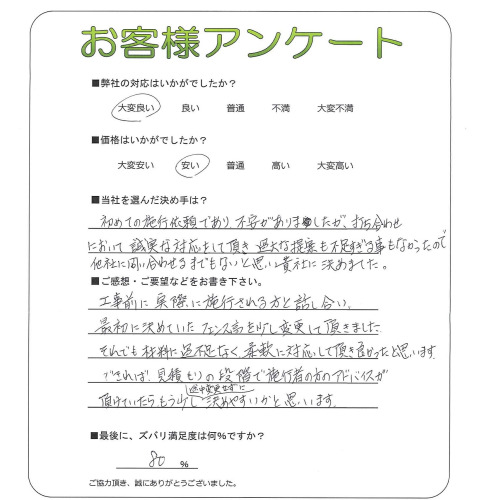 お客様アンケート
■弊社の対応はいかがでしたか?
大変良い 良い 普通 不満 大変不満
■価格はいかがでしたか?
大変安い 安い 普通 高い 大変高い
■当社を選んだ決め手は?
初めての施行依頼であり不安がありましたが、打ち合わせ
において誠実な対応をして頂き過大な提案も不足すぎる事もなかったので
他社に問い合わせるまでもないと思い貴社に決めました。
■ご感想・ご要望などをお書き下さい。
工事前に実際に施行される方と話し合い、
最初に決めていたフェンス高を少し変更して頂きました
それでも材料に過不足なく柔軟に対応して頂き良かったと思います
できれば、見積もりの段階で施行者の方のアドバイスが
途中変更せずに
頂けていたらもう少し決めやすいかと思います
■最後に、ズバリ満足度は何%ですか?
80 %
ご協力頂き、誠にありがとうございました。